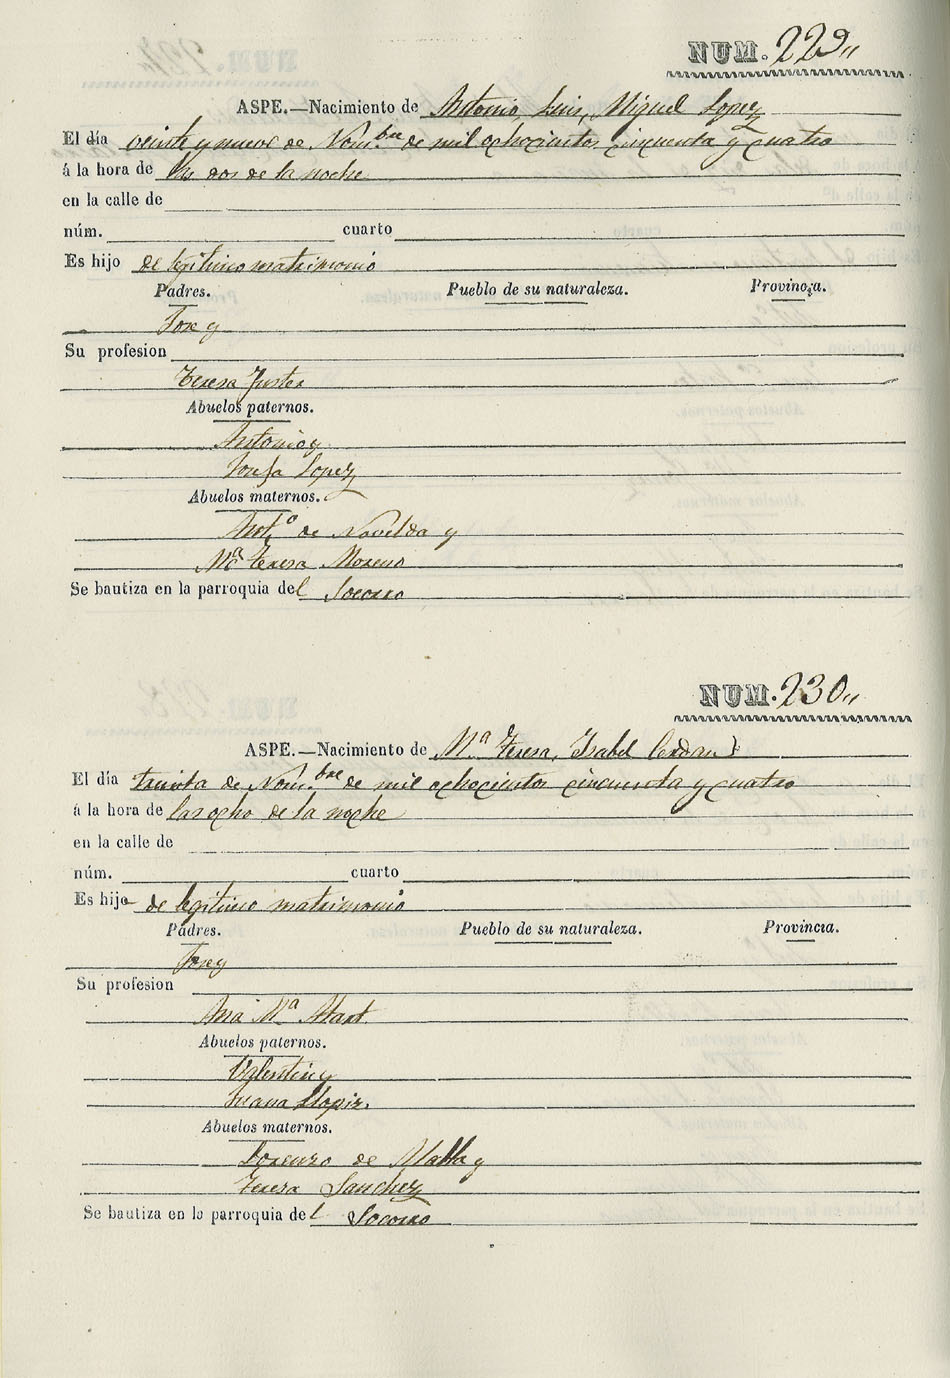 NUM. 229„
ASPE.—Nacimiento de Antonio, Luis, Miguel Lopez
El día veinte y nueve de Nom.bre de mil ochocientos cincuenta y cuatro
á la hora de las dos de la noche
en la calle de
núm. cuarto
Es hijo de legitimo matrimonio
Padres. Pueblo de su naturaleza. Provincia.
Jose y
Su profesion
Teresa Juster
Abuelos paternos.
Antonio y
Josefa Lopez
Abuelos maternos.
Ant.o de Novelda y
Ma Teresa Moreno
Se bautiza en la parroquia del Socorro
NUM. 230„
ASPE.—Nacimiento de Ma Teresa, Isabel Cerdan
El día treinta de Nom.bre de mil ochocientos cincuenta y cuatro
á la hora de las ocho de la noche
en la calle de
núm. cuarto
Es hijo de legitimo matrimonio
Padres. Pueblo de su naturaleza. Provincia.
Jose y
Su profesion
Ana Ma
Abuelos paternos.
Valentin y
Juana Llopiz.
Abuelos maternos.
Lorenzo de y
Teresa Sanchez
Se bautiza en la parroquia del Socorro